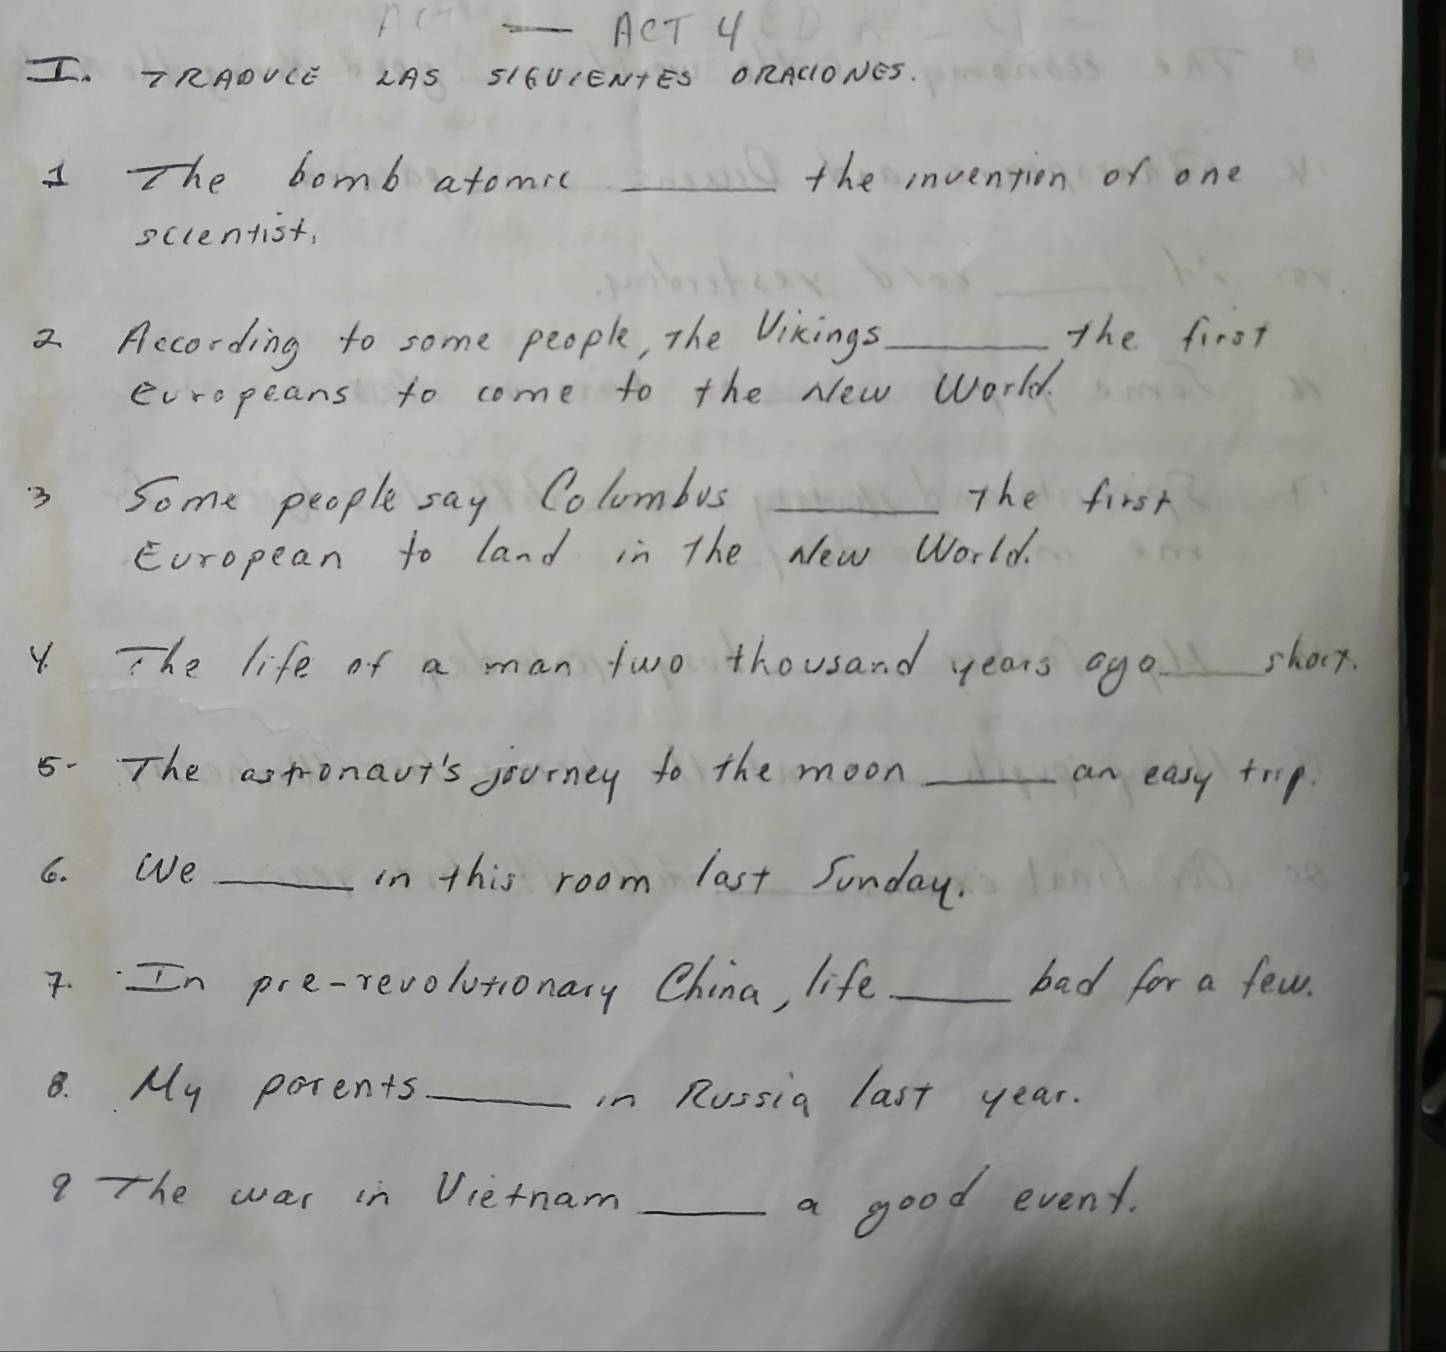 ACT — ACT 4
I. TRADUCE LAS SIGUIENTES ORACIONES.
1 The bomb atomic ______ the invention of one
scientist.
2 According to some people, The Vikings ______ the first
europeans to come to the New World.
3 Some people say Columbus ______ The first
European to land in the New World.
4. The life of a man two thousand years ago ____ short.
5- The astronaut's journey to the moon _____ an easy trip.
6. We _____ in this room last Sunday.
7. In pre-revolutionary China, life _____ bad for a few.
8. My parents _____ in Russia last year.
9 The war in Vietnam _____ a good event.